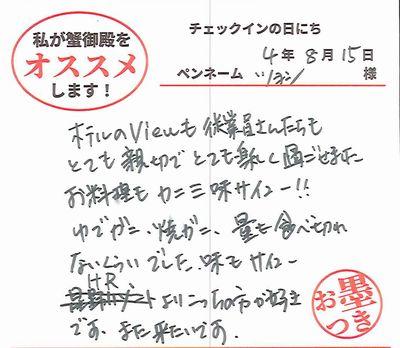 私が蟹御殿を
オススメ
します！
チェックインの日にち
4年8月15日
ペンネーム 様
ホテルのViewも従業員さんたちも
とても親切でとても楽しく過ごせました
お料理もカニ三味サイコー!!
ゆでガニ、焼ガニ、量も食べ切れ
ないくらいでした。味もサイコー
HTR
よりこっちの方が好き
です。また来たいです。
お墨つき